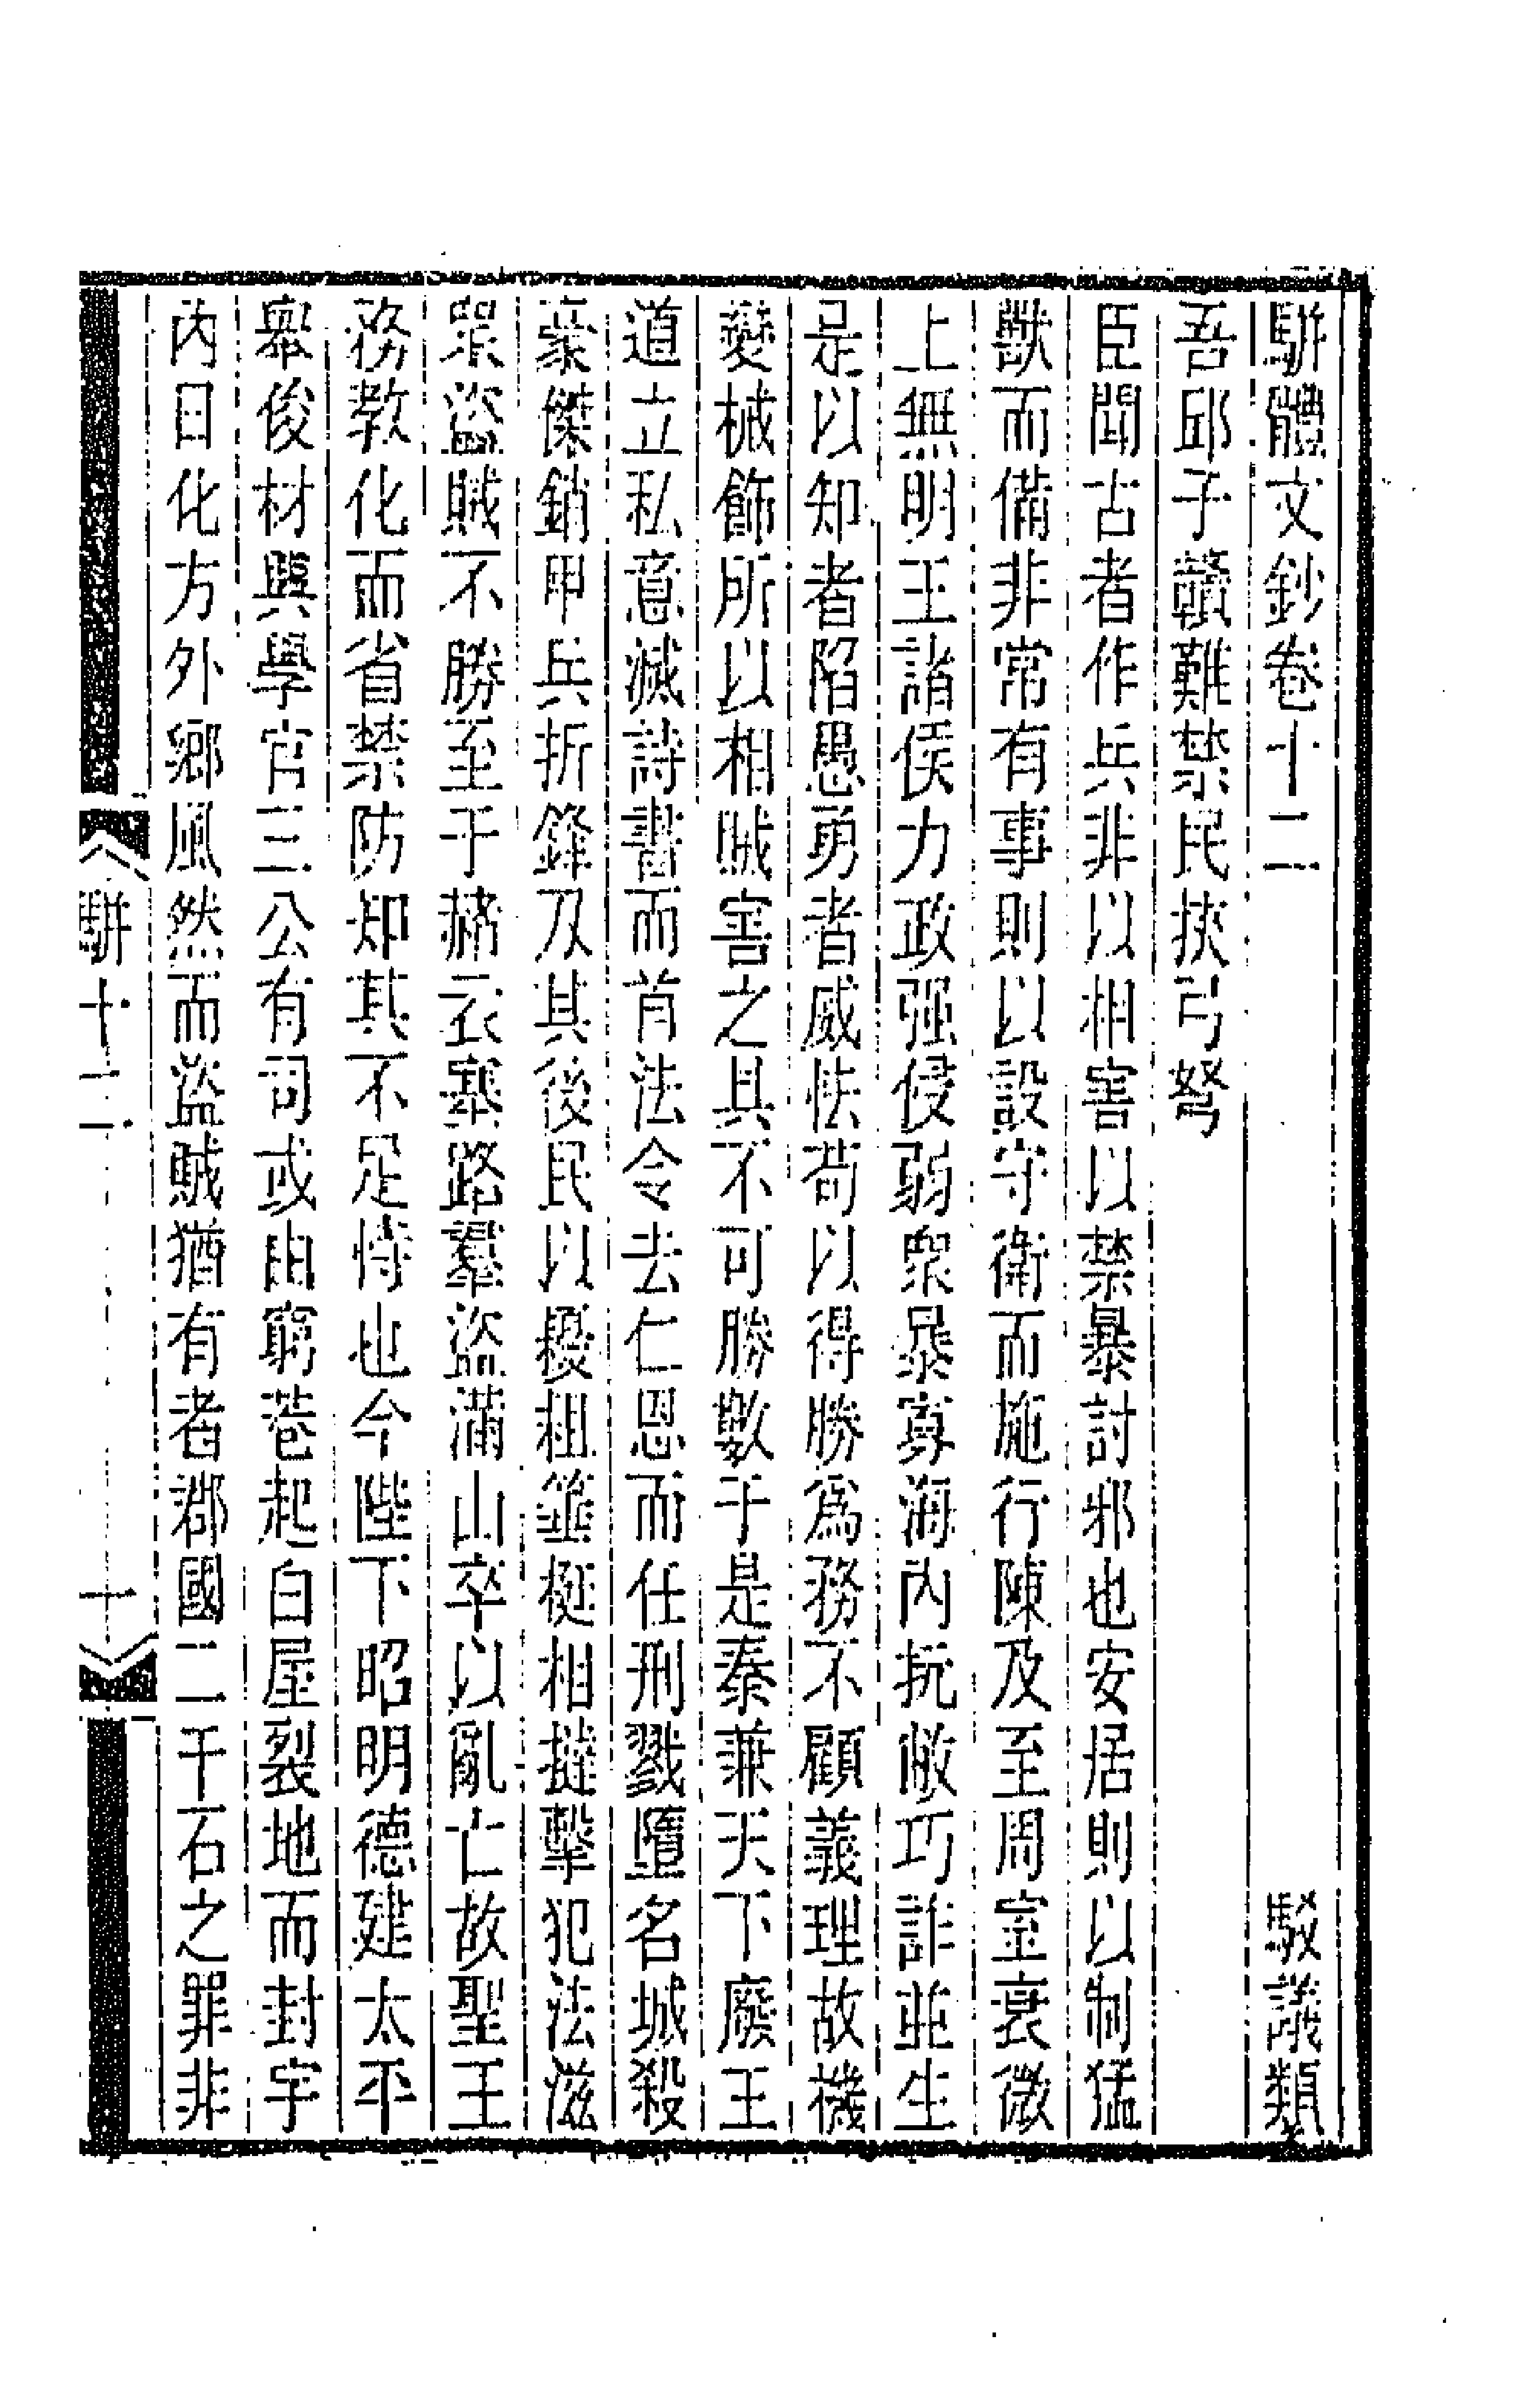 駢體文鈔卷十二　駁議類
吾邱子贛難禁民挾弓弩
臣聞古者作兵非以相害以禁暴討邪也安居則以制猛
獸而備非常有事則以設守衛而施行陳及至周室衰微
上無明王諸侯力政强侵弱衆暴寡海內抏敝巧詐並生
是以知者陷愚勇者威怯苟以得勝爲務不顧義理故機
變械飾所以相賊害之具不可勝數于是秦兼天下廢王
道立私意滅詩書而首法令去仁恩而任刑戮墮名城殺
豪傑銷甲兵折鋒刃其後民以耰鉏箠梃相撻擊犯法滋
衆盜賊不勝至于赭衣塞路羣盜滿山卒以亂亡故聖王
務教化而省禁防知其不足恃也今陛下昭明德建太平
舉俊材興學官三公有司或由窮巷起白屋裂地而封宇
內日化方外鄉風然而盜賊猶有者郡國二千石之罪非
駢十二　一